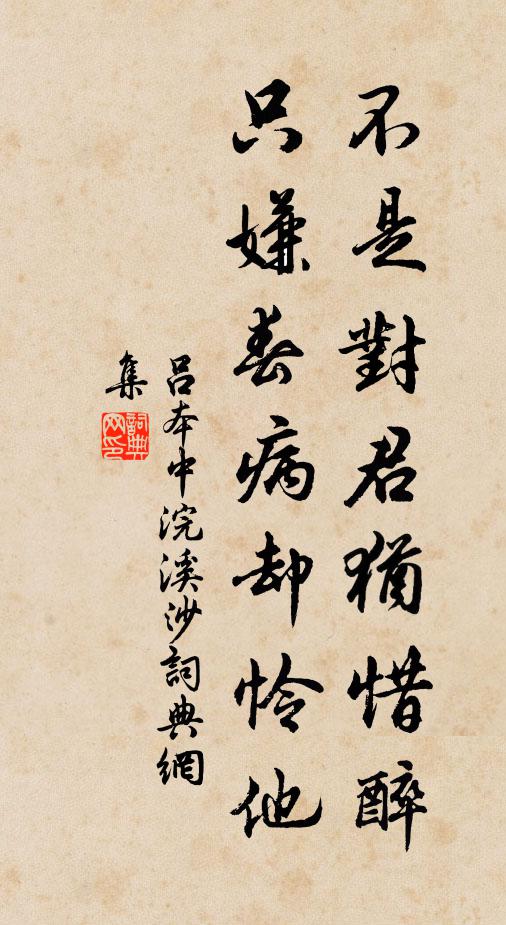 不是對君猶惜醉
只嫌春病却怜他
吕本中浣溪沙詞典網
集
詞典網印